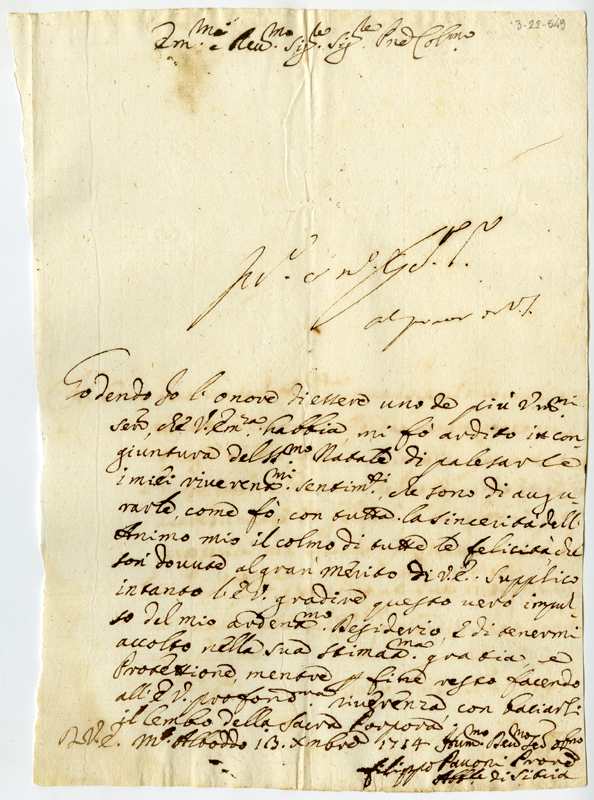 3-22-549
Em.mo e Rev.mo Sig.re Sig.re Pne Col.mo
Godendo Io l'onore di essere uno de più Um.mi
Ser.ri, che V. Em.za habbia, mi fò ardito in con
giuntura del SS.mo Natale di palesarle
i miei riverent.mi sentim.ti, che sono di augu
rarle, come fò, con tutta la sincerità dell'
Animo mio il colmo di tutte le felicità che
son dovute al gran merito di V.E. Supplico
intanto l'E.V. gradire questo vero impul
so del mio ardent.mo Desiderio, e di tenermi
accolto nella sua stimat.ma gratia, e
Protettione, mentre p fine resto facendo
all'E.V. profond.ma riverenza con baciarli
il lembo della Sacra Porpora.
D.V.E. M. Aboddo 13. Xmbre 1714 Hum.mo Dev.mo Sed Oblmo
Filippo Pavoni
Abb.e di